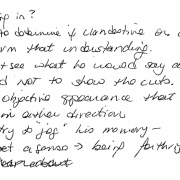 in?
to determine if clandestine or
that understanding.
see what he would say a
not to show the cuts.
objective appearance that
either direction
try to "jog" his memory —
a sense → being forthri